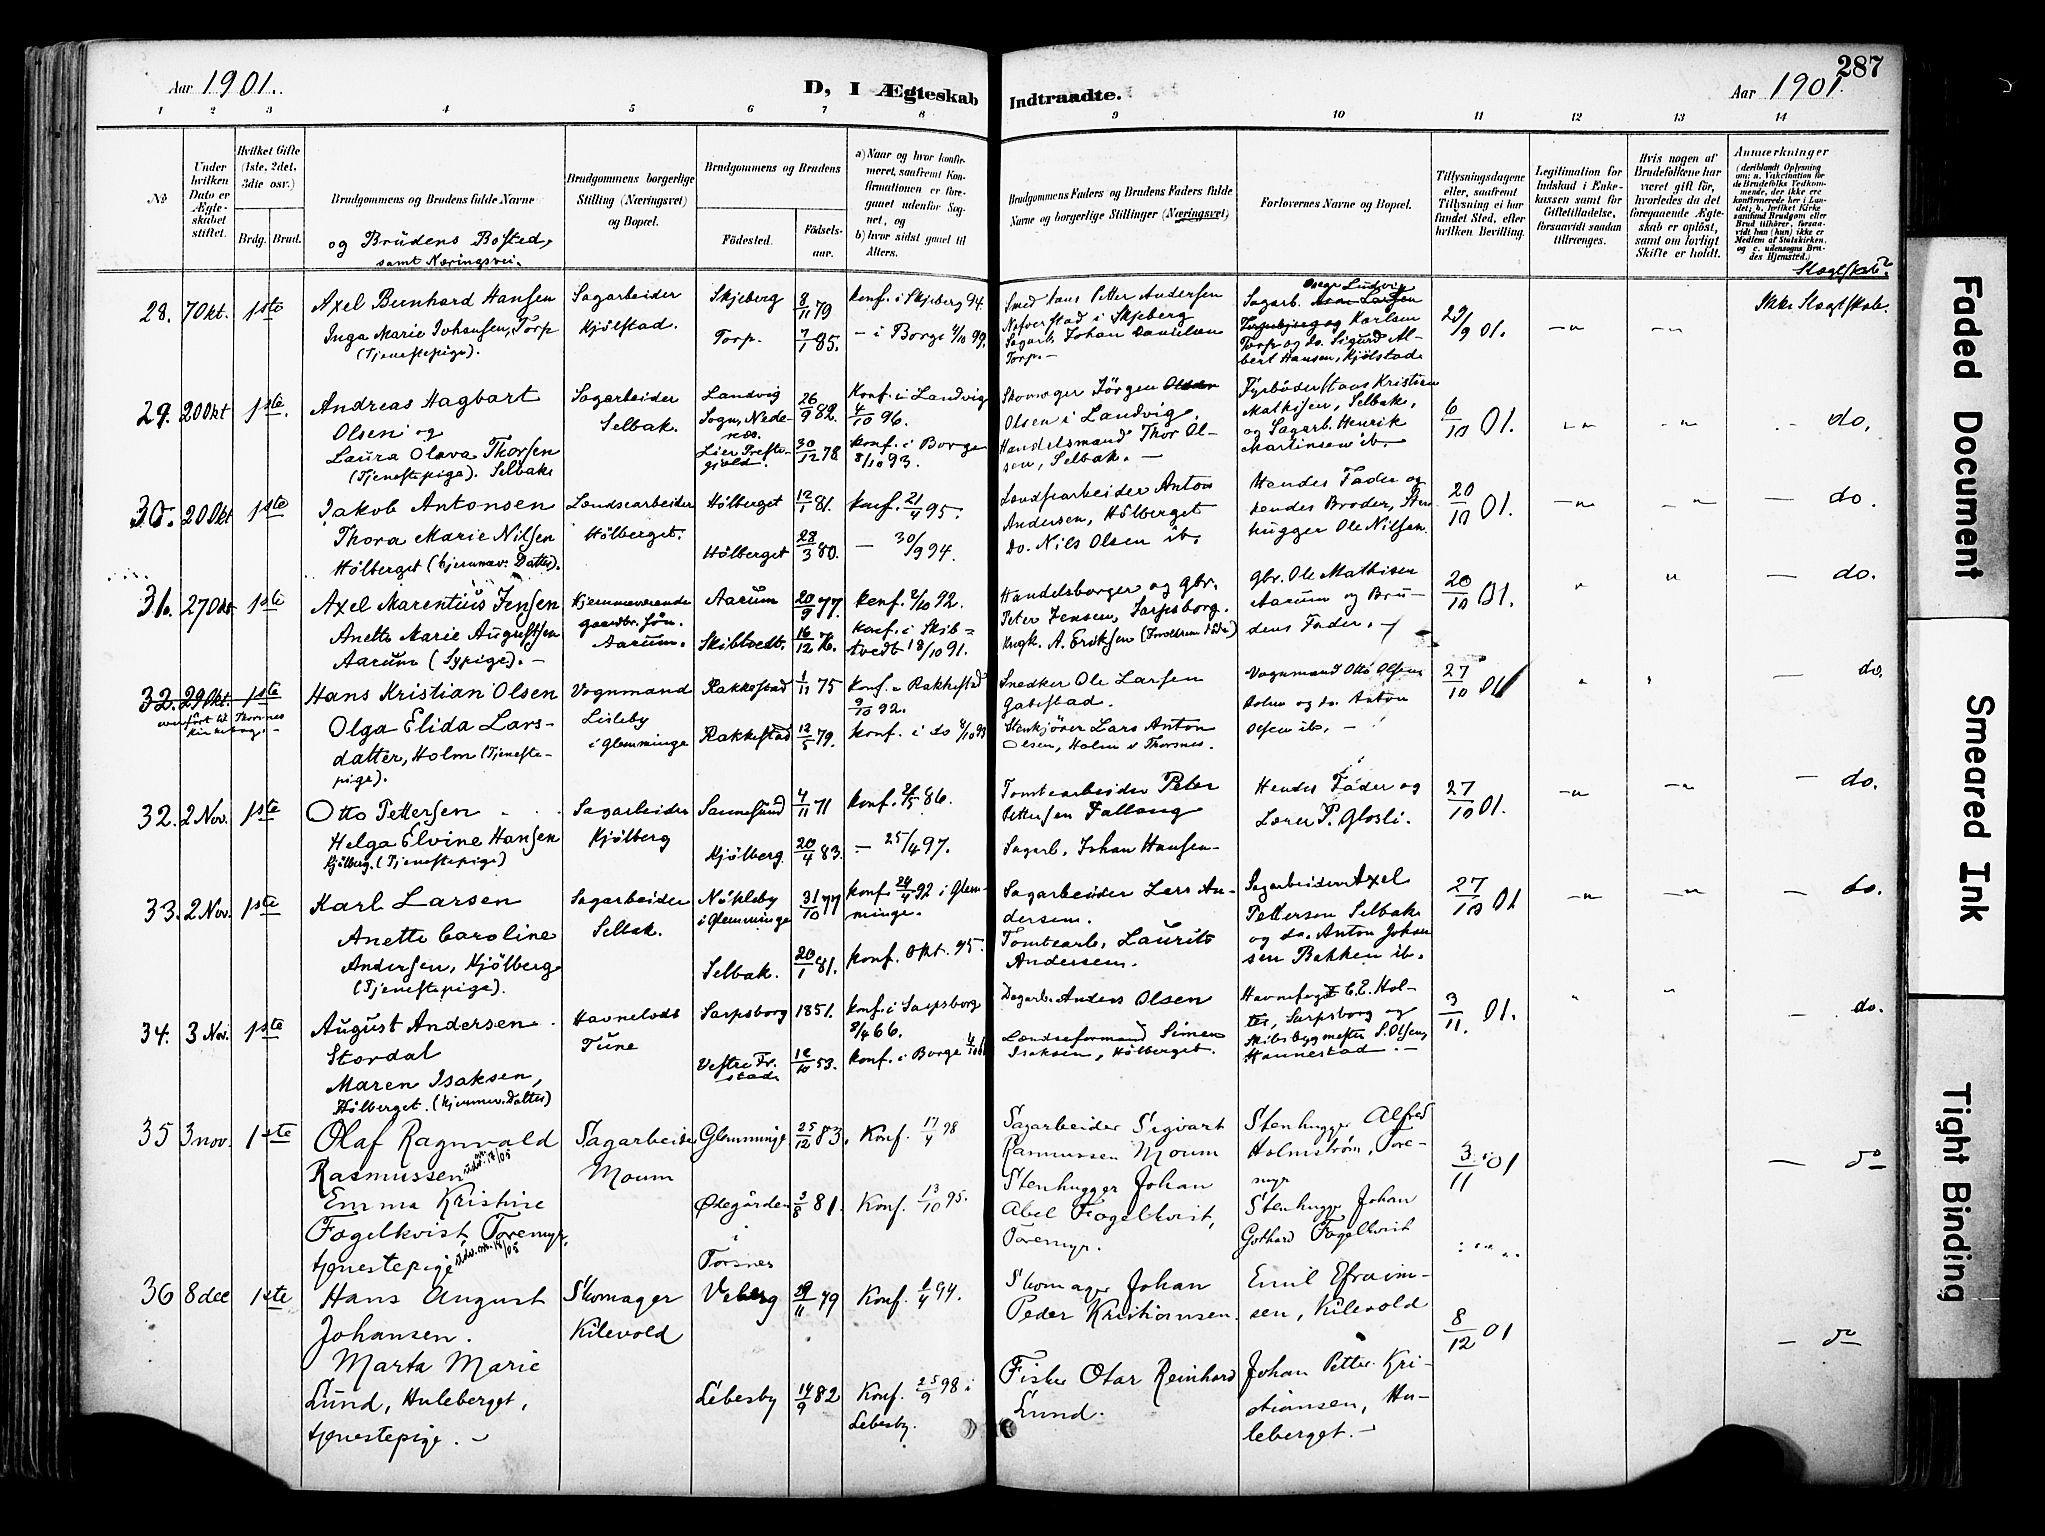 287
Aar 1901.
D, I Ægteskab
Indtraadte.
Aar 1901.
1 2 3 4 5 6 7 8 9 10 11 12 13 14
No
Under hvilken Dato er Ægteskabet stiftet.
Hvilket Gifte (1ste, 2det, 3die osv.)
Brdg. Brud.
Brudgommens og Brudens fulde Navne
og Brudens Bosted,
samt Næringsvei.
Brudgommens borgerlige Stilling (Næringsvei) og Bopæl.
Brudgommens og Brudens
Födested.
Födselsaar.
a) Naar og hvor konfirmeret, saafremt Konfirmationen er foregaaet udenfor Sognet, og
b) hvor sidst gaaet til Alters.
Brudgommens Faders og Brudens Faders fulde Navne og borgerlige Stillinger (Næringsvei)
Forlovernes Navne og Bopæl.
Tillysningsdagene eller, saafremt Tillysning ei har fundet Sted, efter hvilken Bevilling.
Legitimation for Indskud i Enkekassen samt for Giftetilladelse, forsaavidt saadan tiltrænges.
Hvis nogen af Brudefolkene har været gift för, hvorledes da det foregaaende Ægteskab er oplöst, samt om lovligt Skifte er holdt.
Anmærkninger
(deriblandt Oplysning om: a. Vakcination for de Brudefolks Vedkommende, der ikke ere konfirmerede her i Landet; b. hvilket Kirkesamfund Brudgom eller Brud tilhører, forsaavidt han (hun) ikke er Medlem af Statskirken, og c. udensogns Brudes Hjemsted.)
Slægtskab?
28. 7 Okt. 1ste
Axel Bernhard Hansen
Inga Marie Johansen, Torp
(Tjenestepige).
Sagarbeider
Kjölstad.
Skjeberg 8/11 79
Torp. 7/1 85.
konf. i Skjeberg 94.
— i Borge 1/10 99.
Smed Hans Petter Andersen
i Skjeberg
Sagarb. Johan Danielsen
Torp.—
Oscar Ludvig
Sagarb.
Karlsen
Torp og do. Sigurd Albert Hansen, Kjölstad
29/9 01.
Ikke Slægtskab.
29. 20 Okt 1ste.
Andreas Hagbart
Olsen og
Laura Olava Thorsen
(Tjenestepige). Selbak
Sagarbeider
Selbak.
Landvig
Sogn, Nedenæs. 26/9 82.
Lier Præstegjeld. 30/12 78
Konf. i Landvig
4/10 96.
konf. i Borge
8/10 93.
Skomager Jörgen
Olsen i Landvig.
Handelsmand Thor Olsen, Selbak. —
Kristian
Mathisen, Selbak,
og Sagarb. Henrik
Martinsen ib.
6/10 01.
do.
30. 20 Okt 1ste
Jakob Antonsen
Thora Marie Nilsen
Hölberget (hjemmev. Datter).
Landsearbeider
Hölberget.
Hölberget 12/1 81.
Hölberget 28/3 80.
konf. 21/4 95.
— 30/9 94.
Landsearbeider Anton
Andersen, Hölberget
Do. Nils Olsen ib.
Hendes Fader og
hendes Broder, Stenhugger Ole Nilsen
20/10 01.
do.
31. 27 Okt. 1ste
Axel Marentius Jensen
Anette Marie Augustsen
Aarum (Sypige). —
Hjemmeværende
gaardbr. Sön.
Aarum.
Aarum 20/9 77.
Skibtvedt. 16/12 76.
konf. 2/10 92.
konf. i Skibtvedt 18/10 91.
Handelsborger og gbr.
Peter Jensen, Sarpsborg.
A. Eriksen
Gbr. Ole Mathisen
Aarum og Brudens Fader. —
20/10 01.
do.
32. 29 Okt. 1ste
overfört til Thorsnes
Kirkebog.—
Hans Kristian Olsen
Olga Elida Larsdatter, Holm (Tjenestepige).
Vognmand
Lisleby
i Glemminge
Rakkestad 1/11 75
Rakkestad 12/5 79.
Konf. i Rakkestad
9/10 92.
konf. i do 8/10 93
Snedker Ole Larsen
Gabestad.
Stenkjörer Lars Anton
Olsen, Holm i Thorsnes.
Vognmand Otto Olsen
Holm og do. Anton
Olsen ib. —
27/10 01
do.
32. 2 Nov. 1ste
Otto Pettersen
Helga Elvine Hansen
Kjölberg. (Tjenestepige)
Sagarbeider
Kjölberg
Sannesund 4/11 71
Kjölberg 20/4 83.
konf. 2/5 86.
— 25/4 97.
Tomtearbeider Peter
Pettersen Fallang
Sagarb. Johan Hansen
Hendes Fader og
Lærer P. Glosli.
27/10 01.
do.
33. 2 Nov. 1ste
Karl Larsen
Anette Caroline
Andersen, Kjölberg
(Tjenestepige).
Sagarbeider
Selbak.
Nökleby
i Glemminge 31/10 77
Selbak. 20/1 81.
konf. 24/4 92 i Glemminge.
konf. Okt. 95.
Sagarbeider Lars Andersen.
Tomtearb. Laurits
Andersen.
Sagarbeider Axel
Pettersen Selbak
og do. Anton Johansen Bakken ib.
27/10 01
do.
34. 3 Nov. 1ste
August Andersen
Stordal
Maren Isaksen,
Hölberget. (hjemmev. Datter)
Havnelods
Tune
Sarpsborg 1851.
Vestre Fr.stad 12/10 53.
konf. i Sarpsborg
8/4 66.
konf. i Borge
Dagarb. Anders Olsen
Landseformand Simen
Isaksen, Hölberget.
Havnefogd C. E. Holter, Sarpsborg og
Skibsbygmester S. Olsen,
Hannestad. —
3/11. 01.
do.
35 3 nov. 1ste
Olaf Ragnvald
Rasmussen
Emma Kristine
Fogelkvist, Toremyr,
tjenestepige
Sagarbeider
Moum
Glemminge 25/12 83.
Ødegården 3/8 81.
i
Torsnes
Konf. 17/4 98
Konf. 13/10 95.
Sagarbeider Sigvart
Rasmussen Moum
Stenhugger Johan
Abel Fogelkvist,
Toremyr.
Stenhugger Alfred
Holmstrøm, Toremyr
Stenhugger Johan
Gothard Fogelkvist
3/11 01
do
36 8 dec 1ste
Hans August
Johansen.
Marta Marie
Lund, Huleberget,
tjenestepige. —
Skomager
Kilevold
Veberg 29/11 79
Lebesby 14/9 82
Konf. 1/4 94.
Konf. 25/9 98 i
Lebesby.
Skomager Johan
Peder Kristiansen.
Fisker Otar Reinhard
Lund.
Emil Efraimsen, Kilevold
Johan Petter Kristiansen, Huleberget. —
8/12 01
do
Faded Document
Smeared Ink
Tight Binding